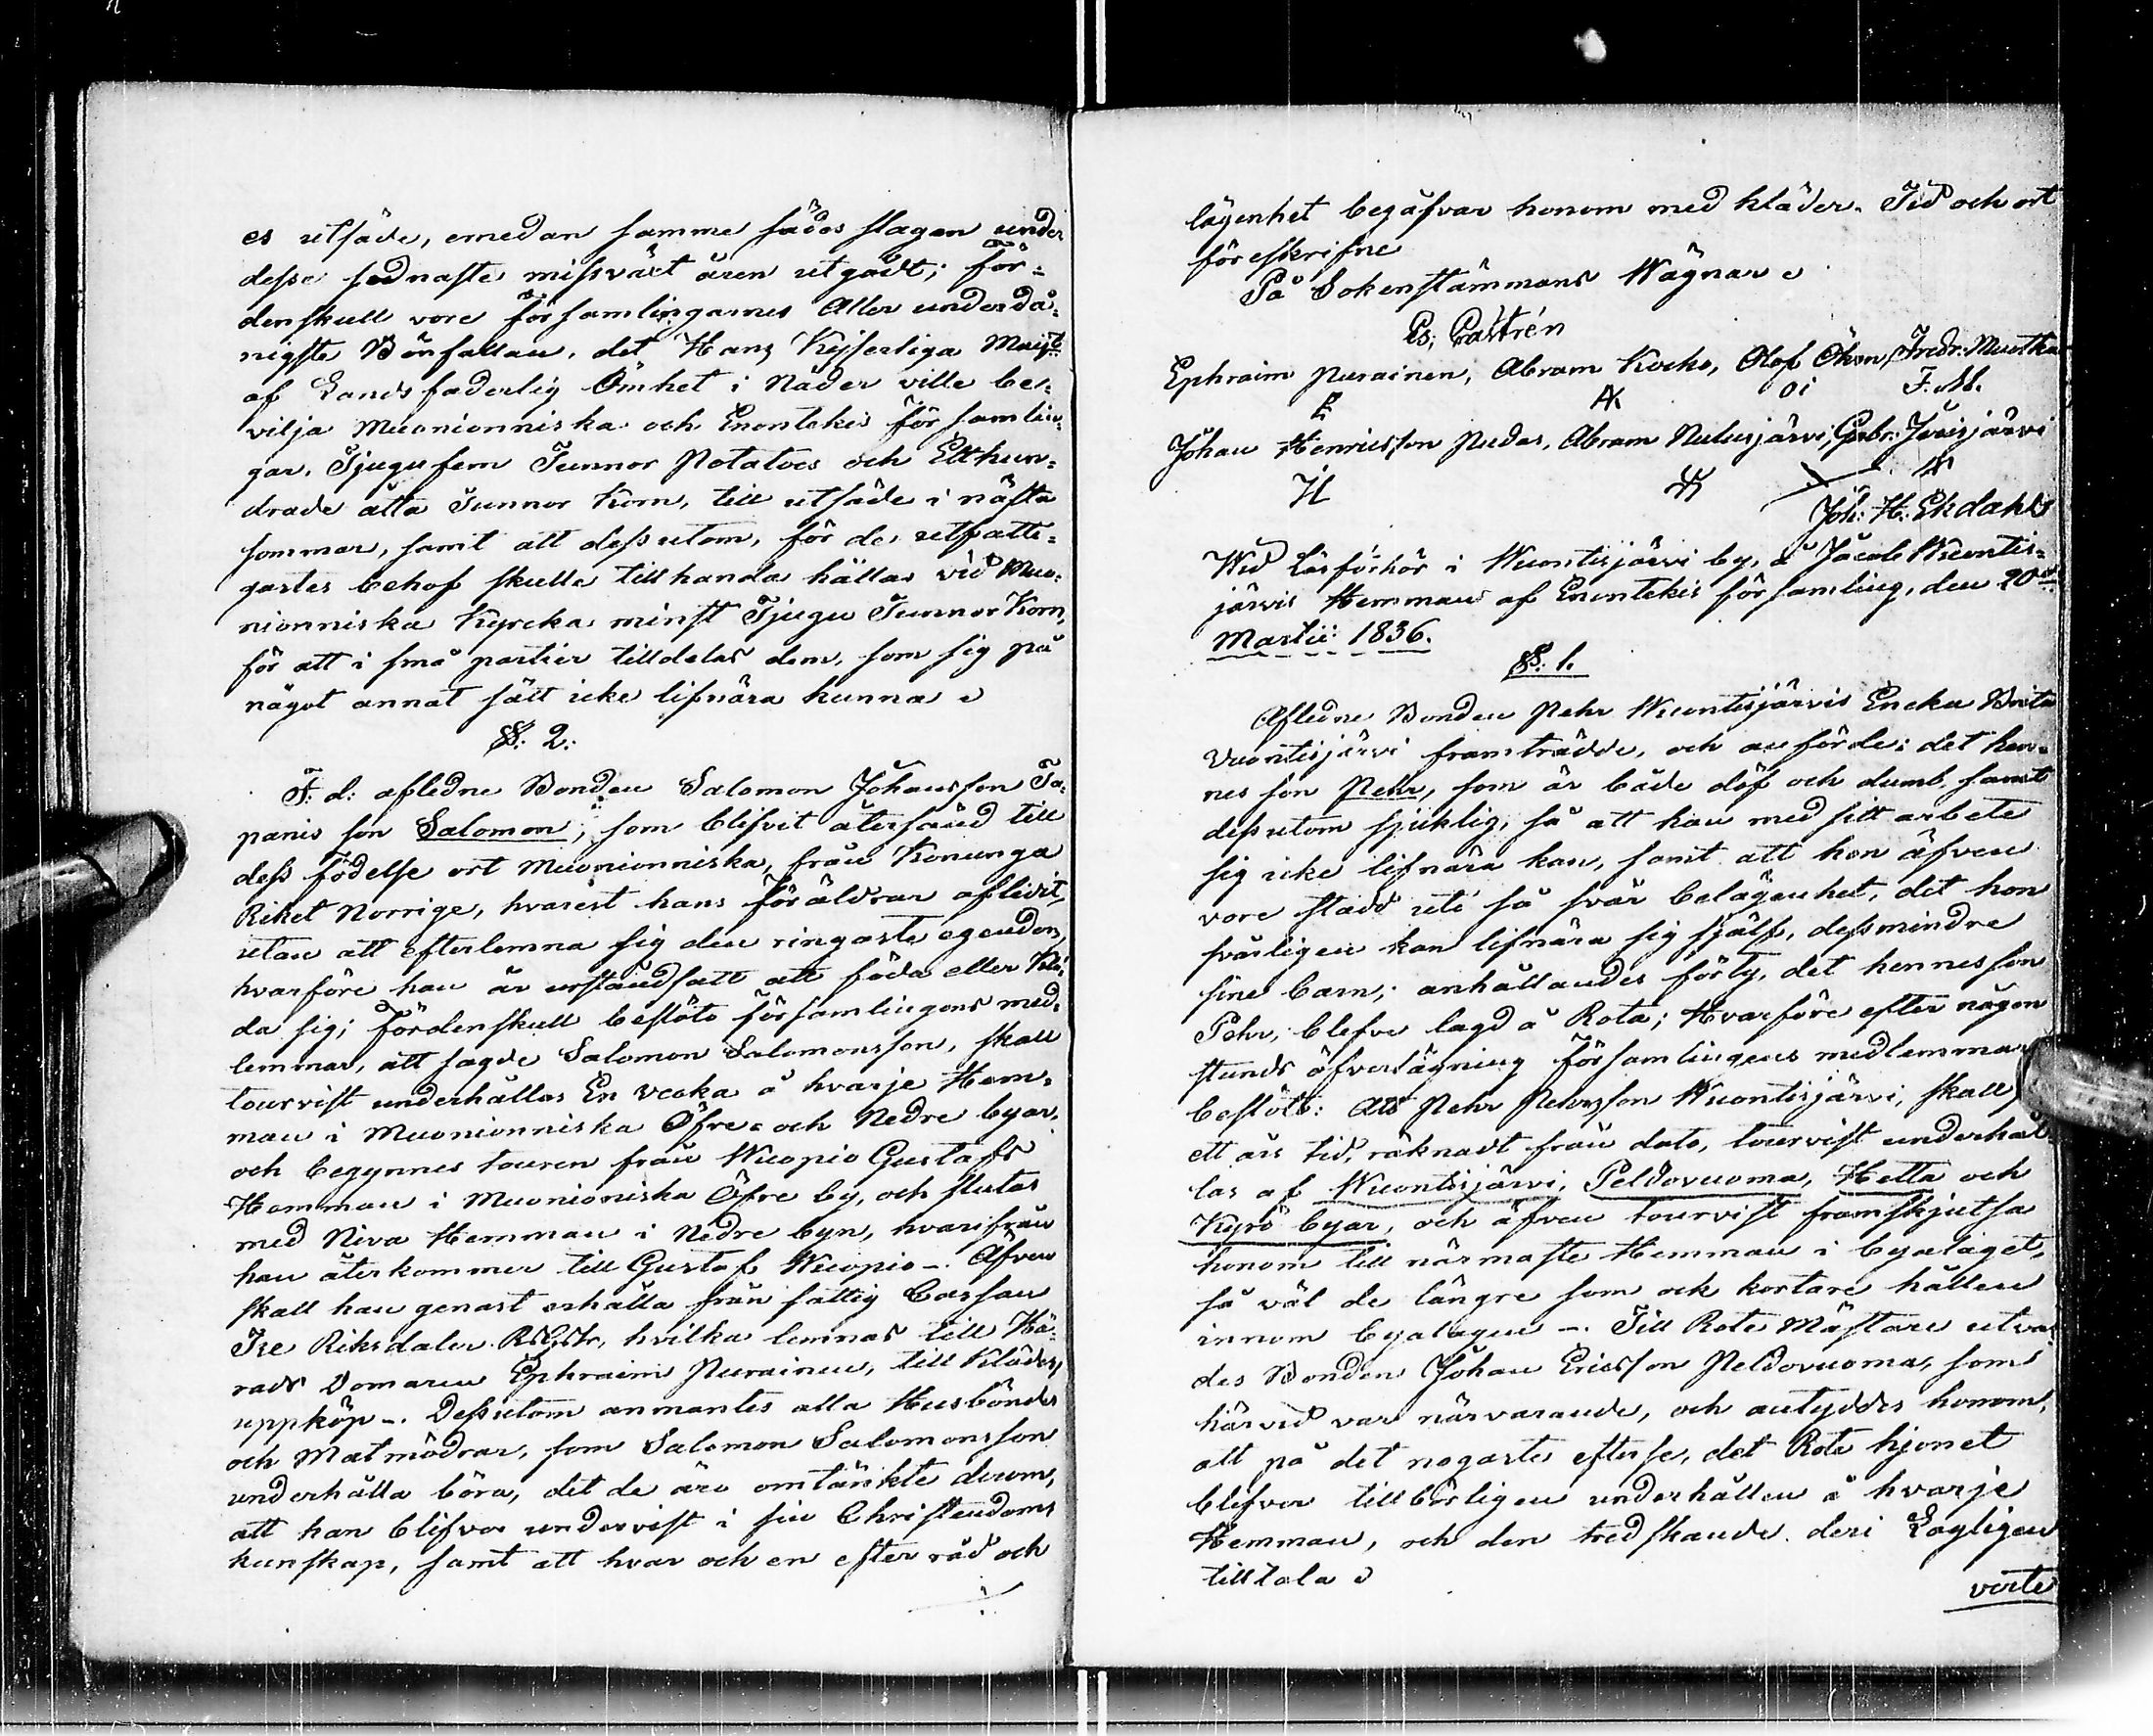 es utsäde, emedan samme sädes slagen under
desse sednaste missväxt åren utgådt; för=
denskull vore församlingarnes Aller underdå=
nigste Bönfallan, det Hans Kejserliga Maij:t
af Landsfaderlig Ömhet i Nåder ville be=
vilja Muonionniska och Enontekis församlin=
gar, Tjugufem Tunnor Potatoes och Ett hun=
drade åtta Tunnor Korn, till utsäde i nästa
sommar, samt att dessutom, för de utfatti=
gastes behof skulle tillhanda hållas vid Muo=
nionniska Kyrcka minst Tjugu Tunnor Korn,
för att i små partier tilldelas dem, som sig på
något annat sätt icke lifnära kunna
§: 2:
F: d: afledne Bonden Salomon Johansson Ta=
panis son Salomon, som blifvit återsänd till
dess födelse ort Muonionniska, från Konunga
Riket Norrige, hvarest hans föräldrar aflidit,
utan att efterlemna sig den ringaste egendom,
hvarföre han är urståndsatt att föda eller klä=
da sig; Fördenskull beslöto församlingens med=
lemmar, att sagde Salomon Salomonsson, skall
tourvist underhållas En vecka å hvarje Hem=
man i Muonionniska Öfre= och Nedre byar,
och begynnes touren från Wuopio Gustafs
Hemman i Muonioniska Öfre by, och slutas
med Niva Hemman i Nedre byn, hvarifrån
han återkommer till Gustaf Wuopio -. Äfven
skall han genast erhålla från fattig Cassan
Tre Riksdaler RsGstr, hvilka lemnas till Hä=
rads Domaren Ephraim Purainen, till Kläders
uppköp -. Dessutom anmantes alla Husbönder
och Matmödrar, som Salomon Salomonsson
underhålla böra, det de äro omtänkte derom,
att han blifver undervist i sin Christendoms
kunskap, samt att hvar och en efter råd och
lägenhet begåfvar honom med kläder. Tid och ort
föreskrifne
På Sokenstämmans Wägnar
Es; Castrén
Ephraim Purainen, Abram Kocko, Olof Öhon, Fredr: Muotka
E AK Oi F. M.
Johan Henricsson Pudas, Abram Nulusjärvi, Gabr: Jeisjärvi
H
Joh: H: Ekdahl
Wid Läsförhör i Wuontisjärvi by, å Jacob Wuontis=
järvis Hemman af Enontekis församling, den 20:de
Martii 1836.
§: 1.
Afledne Bonden Pehr Wuontisjärvis Encka Brita
Vuontisjärvi framträdde, och anförde: det hen=
nes son Pehr, som är både döf och dumb samt
dessutom sjuklig, så att han med sitt arbete
sig icke lifnära kan, samt att hon äfven
vore stadd uti så svår belägenhet, det hon
svårligen kan lifnära sig sjelf, dessmindre
sine barn; anhållandes förty, det hennes son
Pehr, blefve lagd å Rota; Hvarföre efter någon
stunds öfverlägning församlingens medlemmar
beslöto: Att Pehr Pehrsson Wuontisjärvi, skall
ett års tid, räknadt från dato, tourvist underhål=
las af Wuontisjärvi, Peldovuoma, Hetta och
Kyrö byar, och äfven tourvist framskjutsa
honom till närmaste Hemman i byalaget,
så väl de längre som ock kortare hållen
innom byalagen -. Till Rote Mästare utval=
des Bonden Johan Ericsson Peldovuoma, som
härvid var närvarande, och antyddes honom,
att på det nogaste efterse, det Rote hjonet
blefver tillbörligen underhållen å hvarje
Hemman, och den tredskande deri Lagligen
tilltala
verte